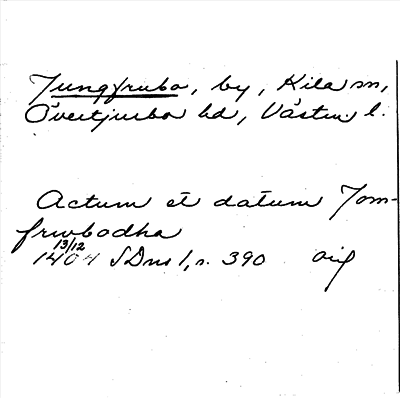 Jungfrubo, by, Kila sn,
Övertjurbo hd, Västm. l.
Actum et datum Jom-
frwbodha
13/12
1404 SDns 1, s. 390 orig